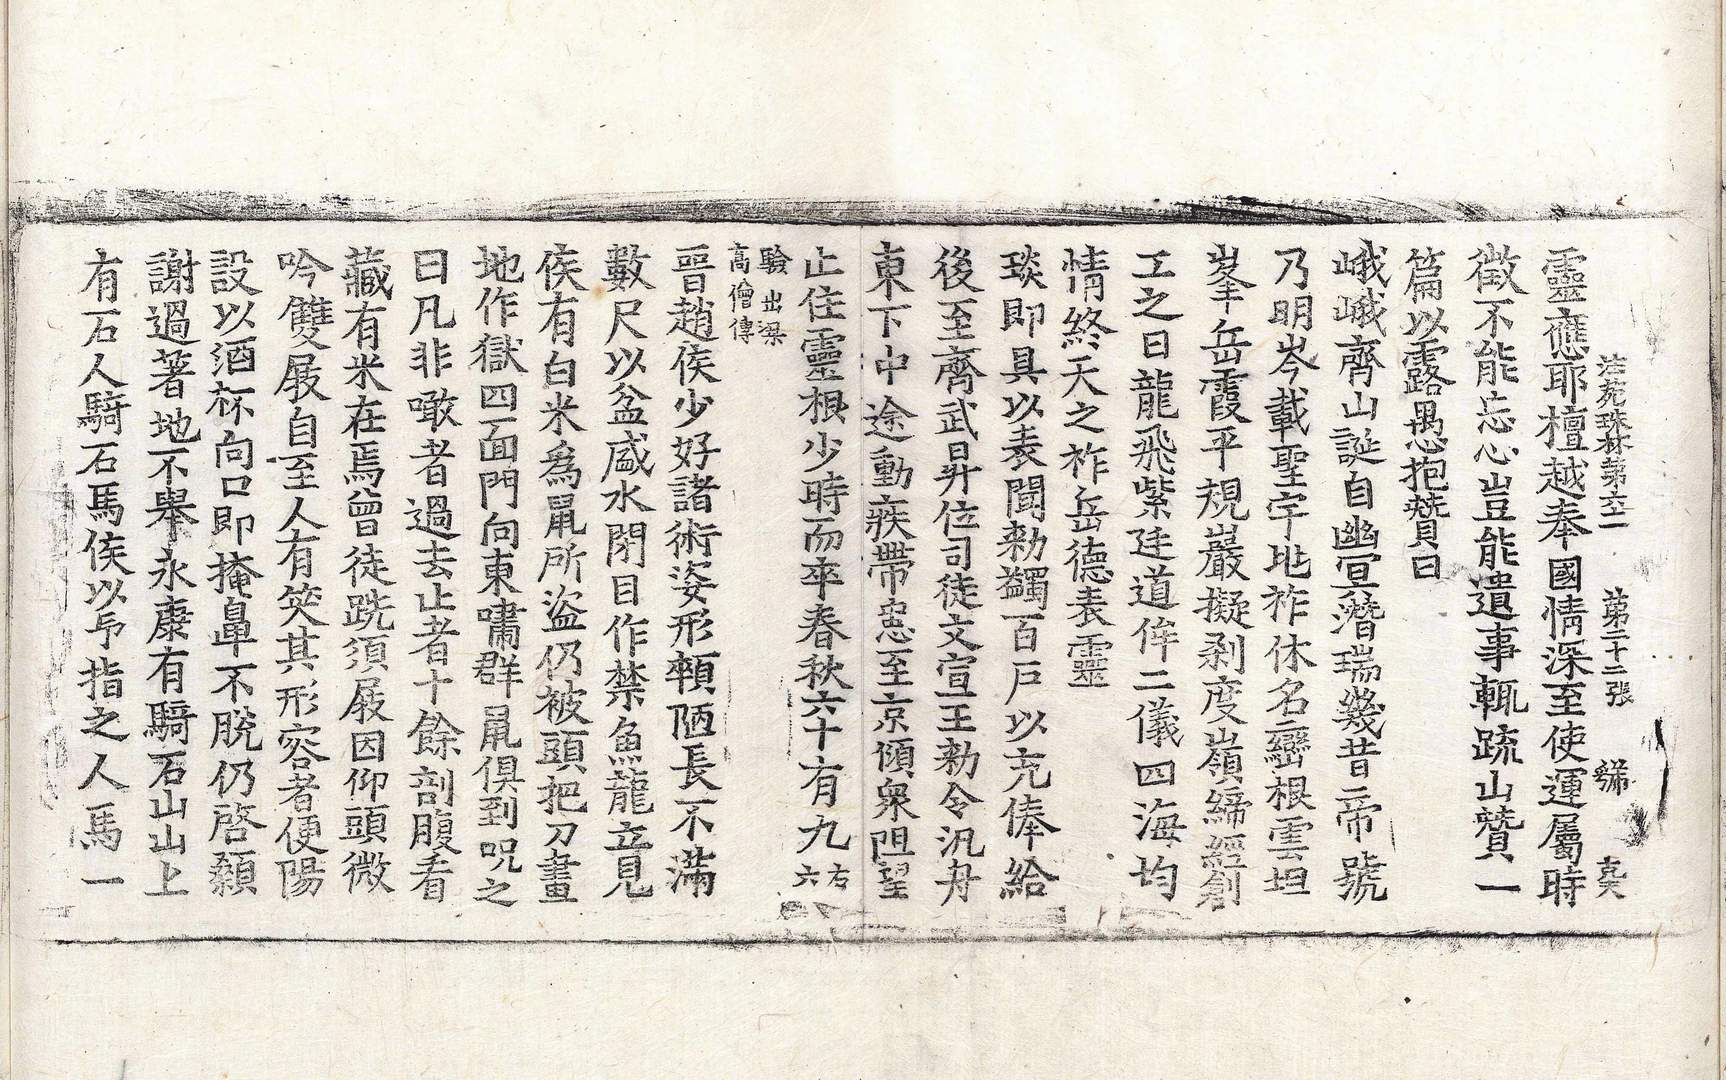 法苑珠林第六一 第二十二張 號
靈應耶檀越奉國情深至使運屬時
徵不能忘心豈能遺事輒䟽山贊一
篇以露愚抱贊曰
峨峨齊山誕自幽冥潛瑞幾昔帝號
乃明岑載聖宇地祚休名巒根雲坦
峯岳霞平規巖擬刹度嶺締經創
工之日龍飛紫廷道侔二儀四海均
情終天之祚岳德表靈
琰即具以表聞勑蠲百戶以充俸給
後至齊武昇位司徒文宣王勑令汎舟
東下中途動疾帶患至京傾衆阻望
止住靈根少時而卒春秋六十有九 右六
驗出梁
高僧傳
晉趙侯少好諸術姿形顇陋長不滿
數尺以盆盛水閉目作禁魚龍立見
侯有白米爲鼠所盜仍被頭把刀畫
地作獄四面門向東嘯群鼠俱到呪之
曰凡非噉者過去止者十餘剖腹看
藏有米在焉曾徒跣須屐因仰頭微
吟雙屐自至人有笑其形容者便陽
設以酒杯向口即掩鼻不脫仍啓顙
謝過著地不舉永康有騎石山山上
有石人騎石馬侯以印指之人馬一